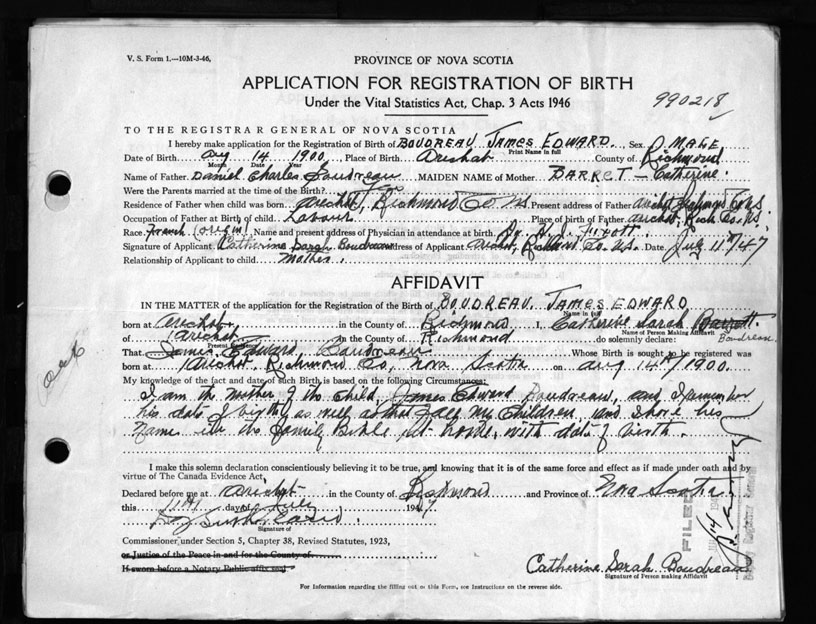 V. S. Form 1.—10M-3-46,
PROVINCE OF NOVA SCOTIA
APPLICATION FOR REGISTRATION OF BIRTH
Under the Vital Statistics Act, Chap. 3 Acts 1946
990218
TO THE REGISTRAR GENERAL OF NOVA SCOTIA
I hereby make application for the Registration of Birth of BOUDREAU JAMES EDWARD. Sex MALE
Print Name in full
Date of Birth Aug 14 1900, Place of Birth Arichat County of Richmond
Month Date Year
Name of Father Daniel Charles Boudreau MAIDEN NAME of Mother BARRET — Catherine
Were the Parents married at the time of the Birth? Yes
Residence of Father when child was born Arichat, Richmond Co N.S. Present address of Father Arichat Richmond Co N.S.
Occupation of Father at Birth of child. Labour Place of birth of Father Arichat, Rich Co. N.S.
Race. French (origin) Name and present address of Physician in attendance at birth. Dr.
Signature of Applicant Catherine Sarah Boudreau address of Applicant Arichat, Richmond Co. N.S. Date July 11th/47
Relationship of Applicant to child. Mother.
AFFIDAVIT
IN THE MATTER of the application for the Registration of the Birth of BOUDREAU. JAMES EDWARD
Name in full
born at Arichat in the County of Richmond I, Catherine Sarah Barrett. Boudreau
Name of Person Making Affidavit
of Arichat in the County of Richmond do solemnly declare:
Present Residence
That James Edward Boudreau Whose Birth is sought to be registered was
born at Arichat, Richmond Co, Nova Scotia on Aug 14th/1900.
My knowledge of the fact and date of such Birth is based on the following Circumstances:
I am the mother of the child, James Edward Boudreau, and I remember
his date of birth as well as that of all my children, and I have his
name in the family Bible at home, with date of birth.
Oct
I make this solemn declaration conscientiously believing it to be true, and knowing that it is of the same force and effect as if made under oath and by
virtue of The Canada Evidence Act,
Declared before me at Arichat in the County of Richmond and Province of Nova Scotia
this 11th day of July 1947.
Signature of
Commissioner under Section 5, Chapter 38, Revised Statutes, 1923,
or Justice of the Peace in and for the County of
If sworn before a Notary Public affix seal
FILED
Catherine Sarah Boudreau
Signature of Person making Affidavit
For Information regarding the filling out of this Form, see Instructions on the reverse side.